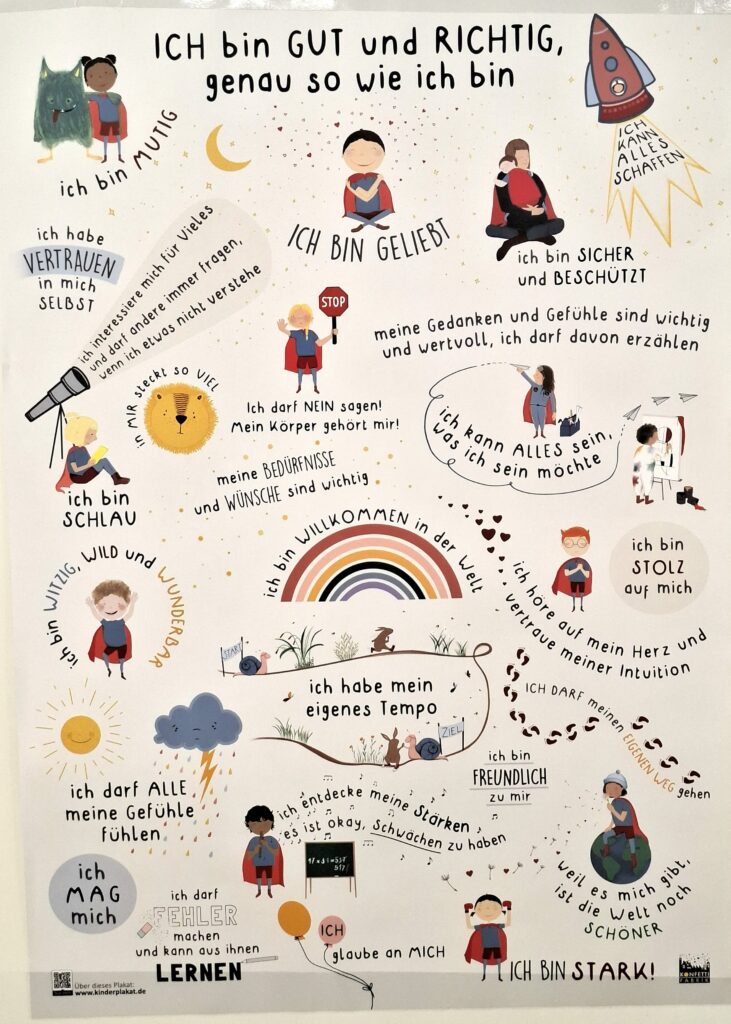 ICH bin GUT und RICHTIG,
genau so wie ich bin
ich bin MUTIG
ICH BIN GELIEBT
ICH
KANN
ALLES
SCHAFFEN
ich bin SICHER
und BESCHÜTZT
ich habe
VERTRAUEN
in mich
SELBST
ich interessiere mich für Vieles
und darf andere immer fragen,
wenn ich etwas nicht verstehe
STOP
Ich darf NEIN sagen!
Mein Körper gehört mir!
meine Gedanken und Gefühle sind wichtig
und wertvoll, ich darf davon erzählen
in MIR steckt so VIEL
ich bin
SCHLAU
ich kann ALLES sein,
was ich sein möchte
meine BEDÜRFNISSE
und WÜNSCHE sind wichtig
ich bin WILLKOMMEN in der Welt
ich bin
STOLZ
auf mich
ich bin WITZIG, WILD und WUNDERBAR
ich höre auf mein Herz und
vertraue meiner Intuition
START
ich habe mein
eigenes Tempo
ZIEL
ICH DARF meinen EIGENEN WEG gehen
ich darf ALLE
meine Gefühle
fühlen
ich bin
FREUNDLICH
zu mir
ich entdecke meine Stärken
es ist okay, Schwächen zu haben
weil es mich gibt,
ist die Welt noch
SCHÖNER
ich
MAG
mich
ich darf
FEHLER
machen
und kann aus ihnen
LERNEN
ICH
glaube an MICH
ICH BIN STARK!
Über dieses Plakat:
www.kinderplakat.de
KONFETTI
FABRIK